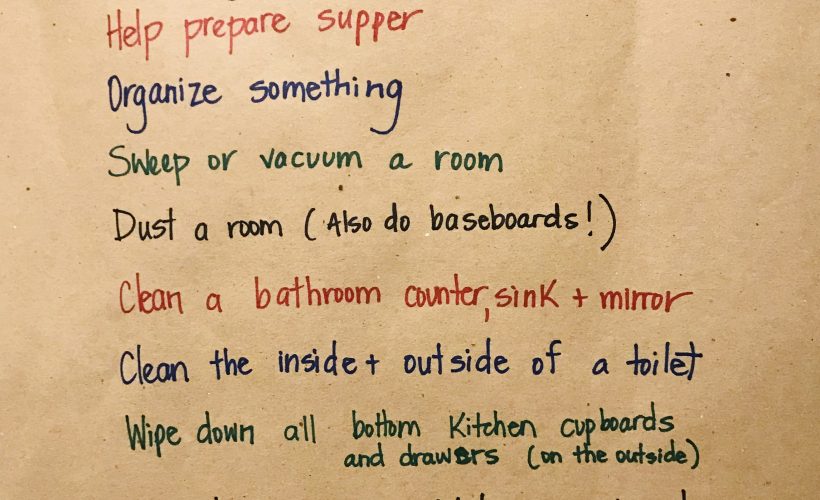 Help prepare supper
Organize something
Sweep or vacuum a room
Dust a room (Also do baseboards!)
Clean a bathroom counter, sink + mirror
Clean the inside + outside of a toilet
Wipe down all bottom Kitchen cupboards
and drawers (on the outside)